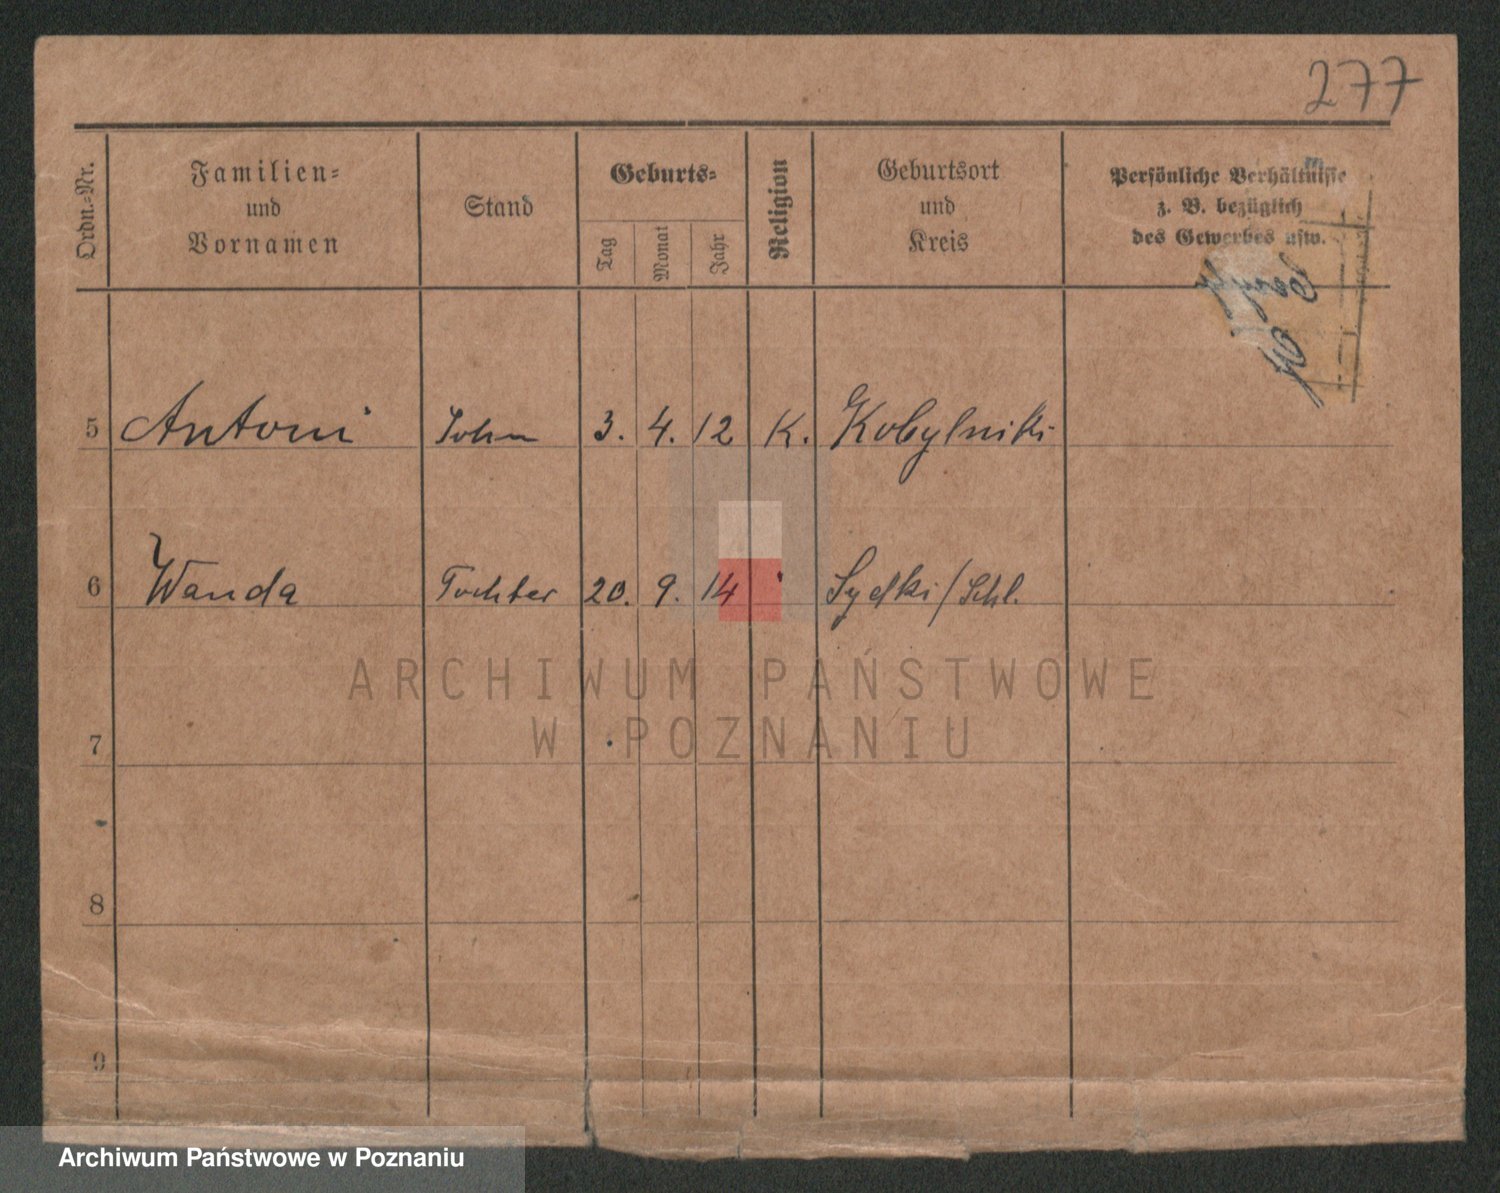 277
Ordn.-Nr.
Familien-
und
Vornamen
Stand
Geburts-
Tag
Monat
Jahr
Religion
Geburtsort
und
Kreis
Persönliche Verhältnisse
z. B. bezüglich
des Gewerbes usw.
5 Antoni Sohn 3. 4. 12 K. Kobylniki
6 Wanda Tochter 20. 9. 14 " /Schl.
7
8
9
ARCHIWUM PAŃSTWOWE
W POZNANIU
Archiwum Państwowe w Poznaniu